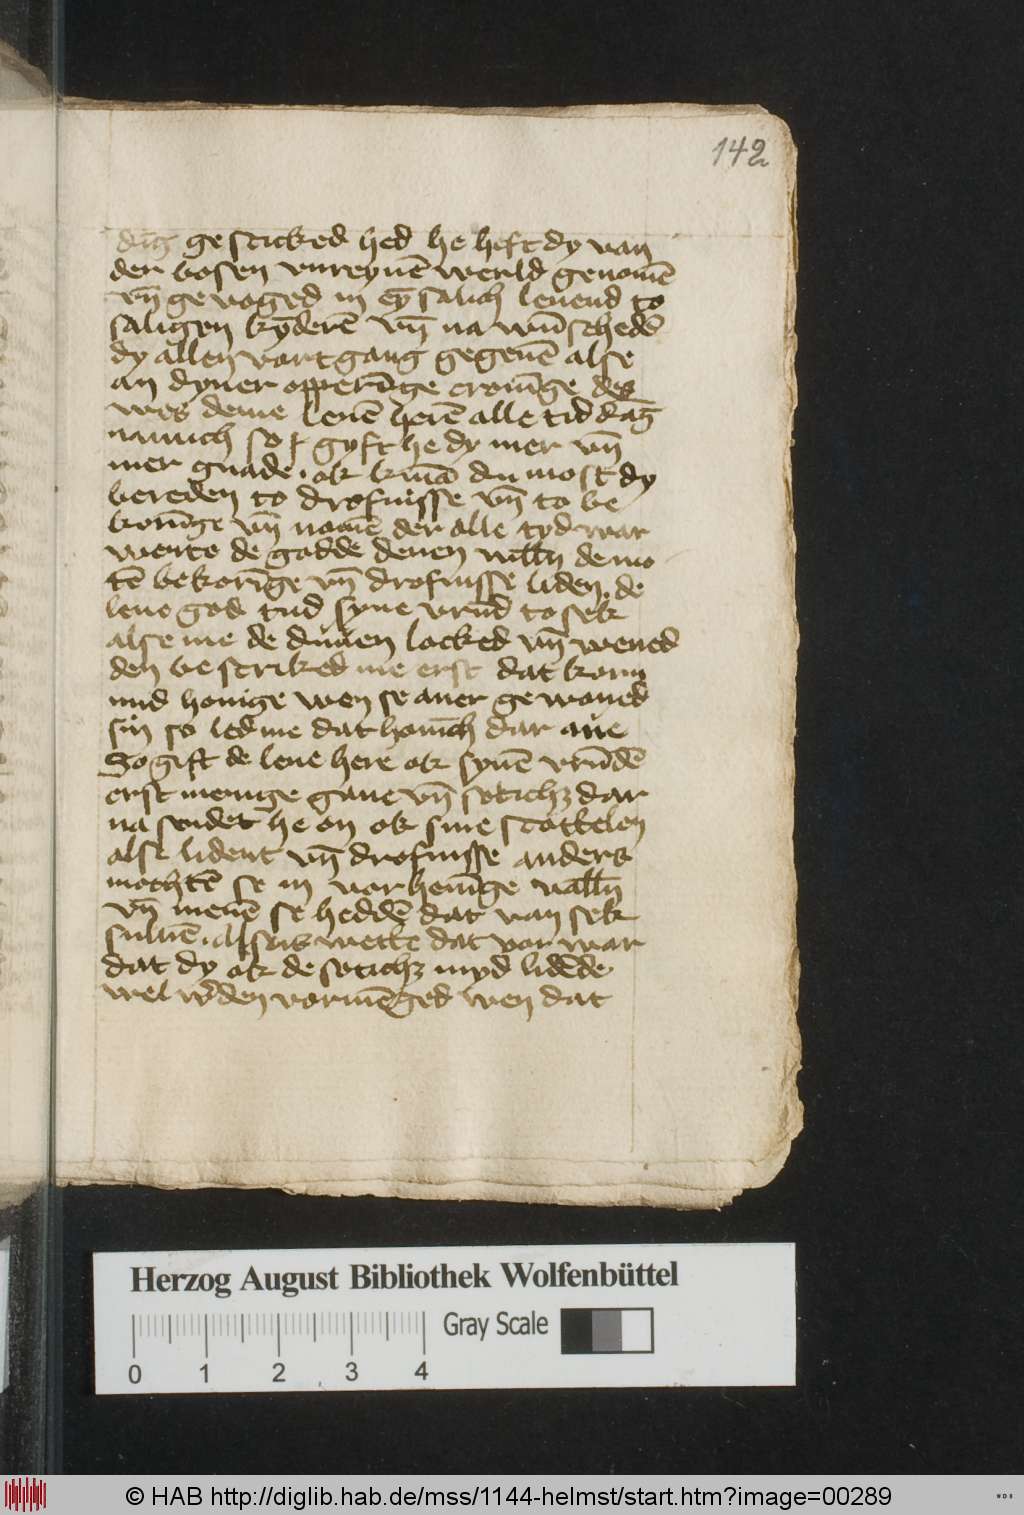 142
dīg gesticked hed he heft dy van
der bosen vnreynē werld genomē
vn̄ gevoged in eȳ salich leuend to
saligen kȳderē vn̄ na wūschedd
dy allen vortgang gegeuē alse
an dyner opperīge cronīge des
wes deme leuē herē alle tid dāg
namich so gyft he dy mer vn̄
mer gnade. ok kīnd du most dy
bereden to drofnisse vn̄ to be
korīge vn̄ nomē der alle tyd war
wente de godde denen willn̄ de mo
tē bekorīge vn̄ drofnisse liden. de
leue god tud syne vrūd to sek
alse me de duuen locked vn̄ wened
den bestriked me erst dat korn
mid honige wen se auer gewoned
sin so led me dat honīch dar aue
So gift de leue here ok synē vrūdē
erst menige gaue vn̄ soticht dar
na sendet he on ok sine stottelen
alse lident vn̄ drofnisse anders
mochtē se in vorheuīge valln̄
vn̄ menē se heddē dat van sek
suluē. Alsus wette dat vor war
dat dy ok de soticht myd lidēde
wel wdden vormēged wen dat
Herzog August Bibliothek Wolfenbüttel
Gray Scale
0 1 2 3 4
© HAB http://diglib.hab.de/mss/1144-helmst/start.htm?image=00289